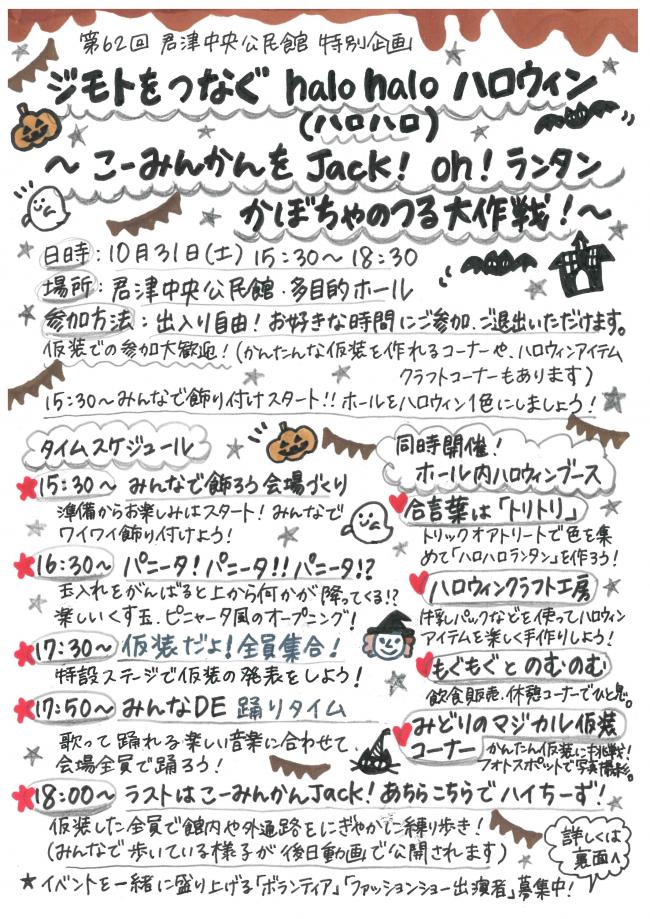 第62回 君津中央公民館 特別企画
ジモトをつなぐ halo halo ハロウィン
(ハロハロ)
～こーみんかんを Jack! oh! ランタン
かぼちゃのつる大作戦！～
日時：10月31日(土) 15:30～18:30
場所：君津中央公民館・多目的ホール
参加方法：出入り自由！お好きな時間にご参加、ご退出いただけます。
仮装での参加大歓迎！(かんたんな仮装を作れるコーナーや、ハロウィンアイテム
クラフトコーナーもあります)
15:30～みんなで飾り付けスタート!! ホールをハロウィン1色にしましょう！
タイムスケジュール
15:30～ みんなで飾ろう会場づくり
準備からお楽しみはスタート！みんなで
ワイワイ飾り付けよう！
16:30～ パニータ！パニータ!!パニータ!?
玉入れをがんばると上から何かが降ってくる!?
楽しいくす玉、ピニャータ風のオープニング！
17:30～ 仮装だよ！全員集合！
特設ステージで仮装の発表をしよう！
17:50～ みんなDE 踊りタイム
歌って踊れる楽しい音楽に合わせて、
会場全員で踊ろう！
18:00～ ラストはこーみんかんJack！あちらこちらでハイちーず！
仮装した全員で館内や外通路をにぎやかに練り歩き！
(みんなで歩いている様子が後日動画で公開されます)
同時開催！
ホール内ハロウィンブース
合言葉は「トリトリ」
トリックオアトリートで色を集
めて「ハロハロランタン」を作ろう！
ハロウィンクラフト工房
牛乳パックなどを使ってハロウィン
アイテムを楽しく手作りしよう！
もぐもぐとのむのむ
飲食販売、休憩コーナーでひと息。
みどりのマジカル仮装
コーナー かんたん仮装に挑戦！
フォトスポットで写真撮影。
詳しくは
裏面へ
★イベントを一緒に盛り上げる「ボランティア」「ファッションショー出演者」募集中！